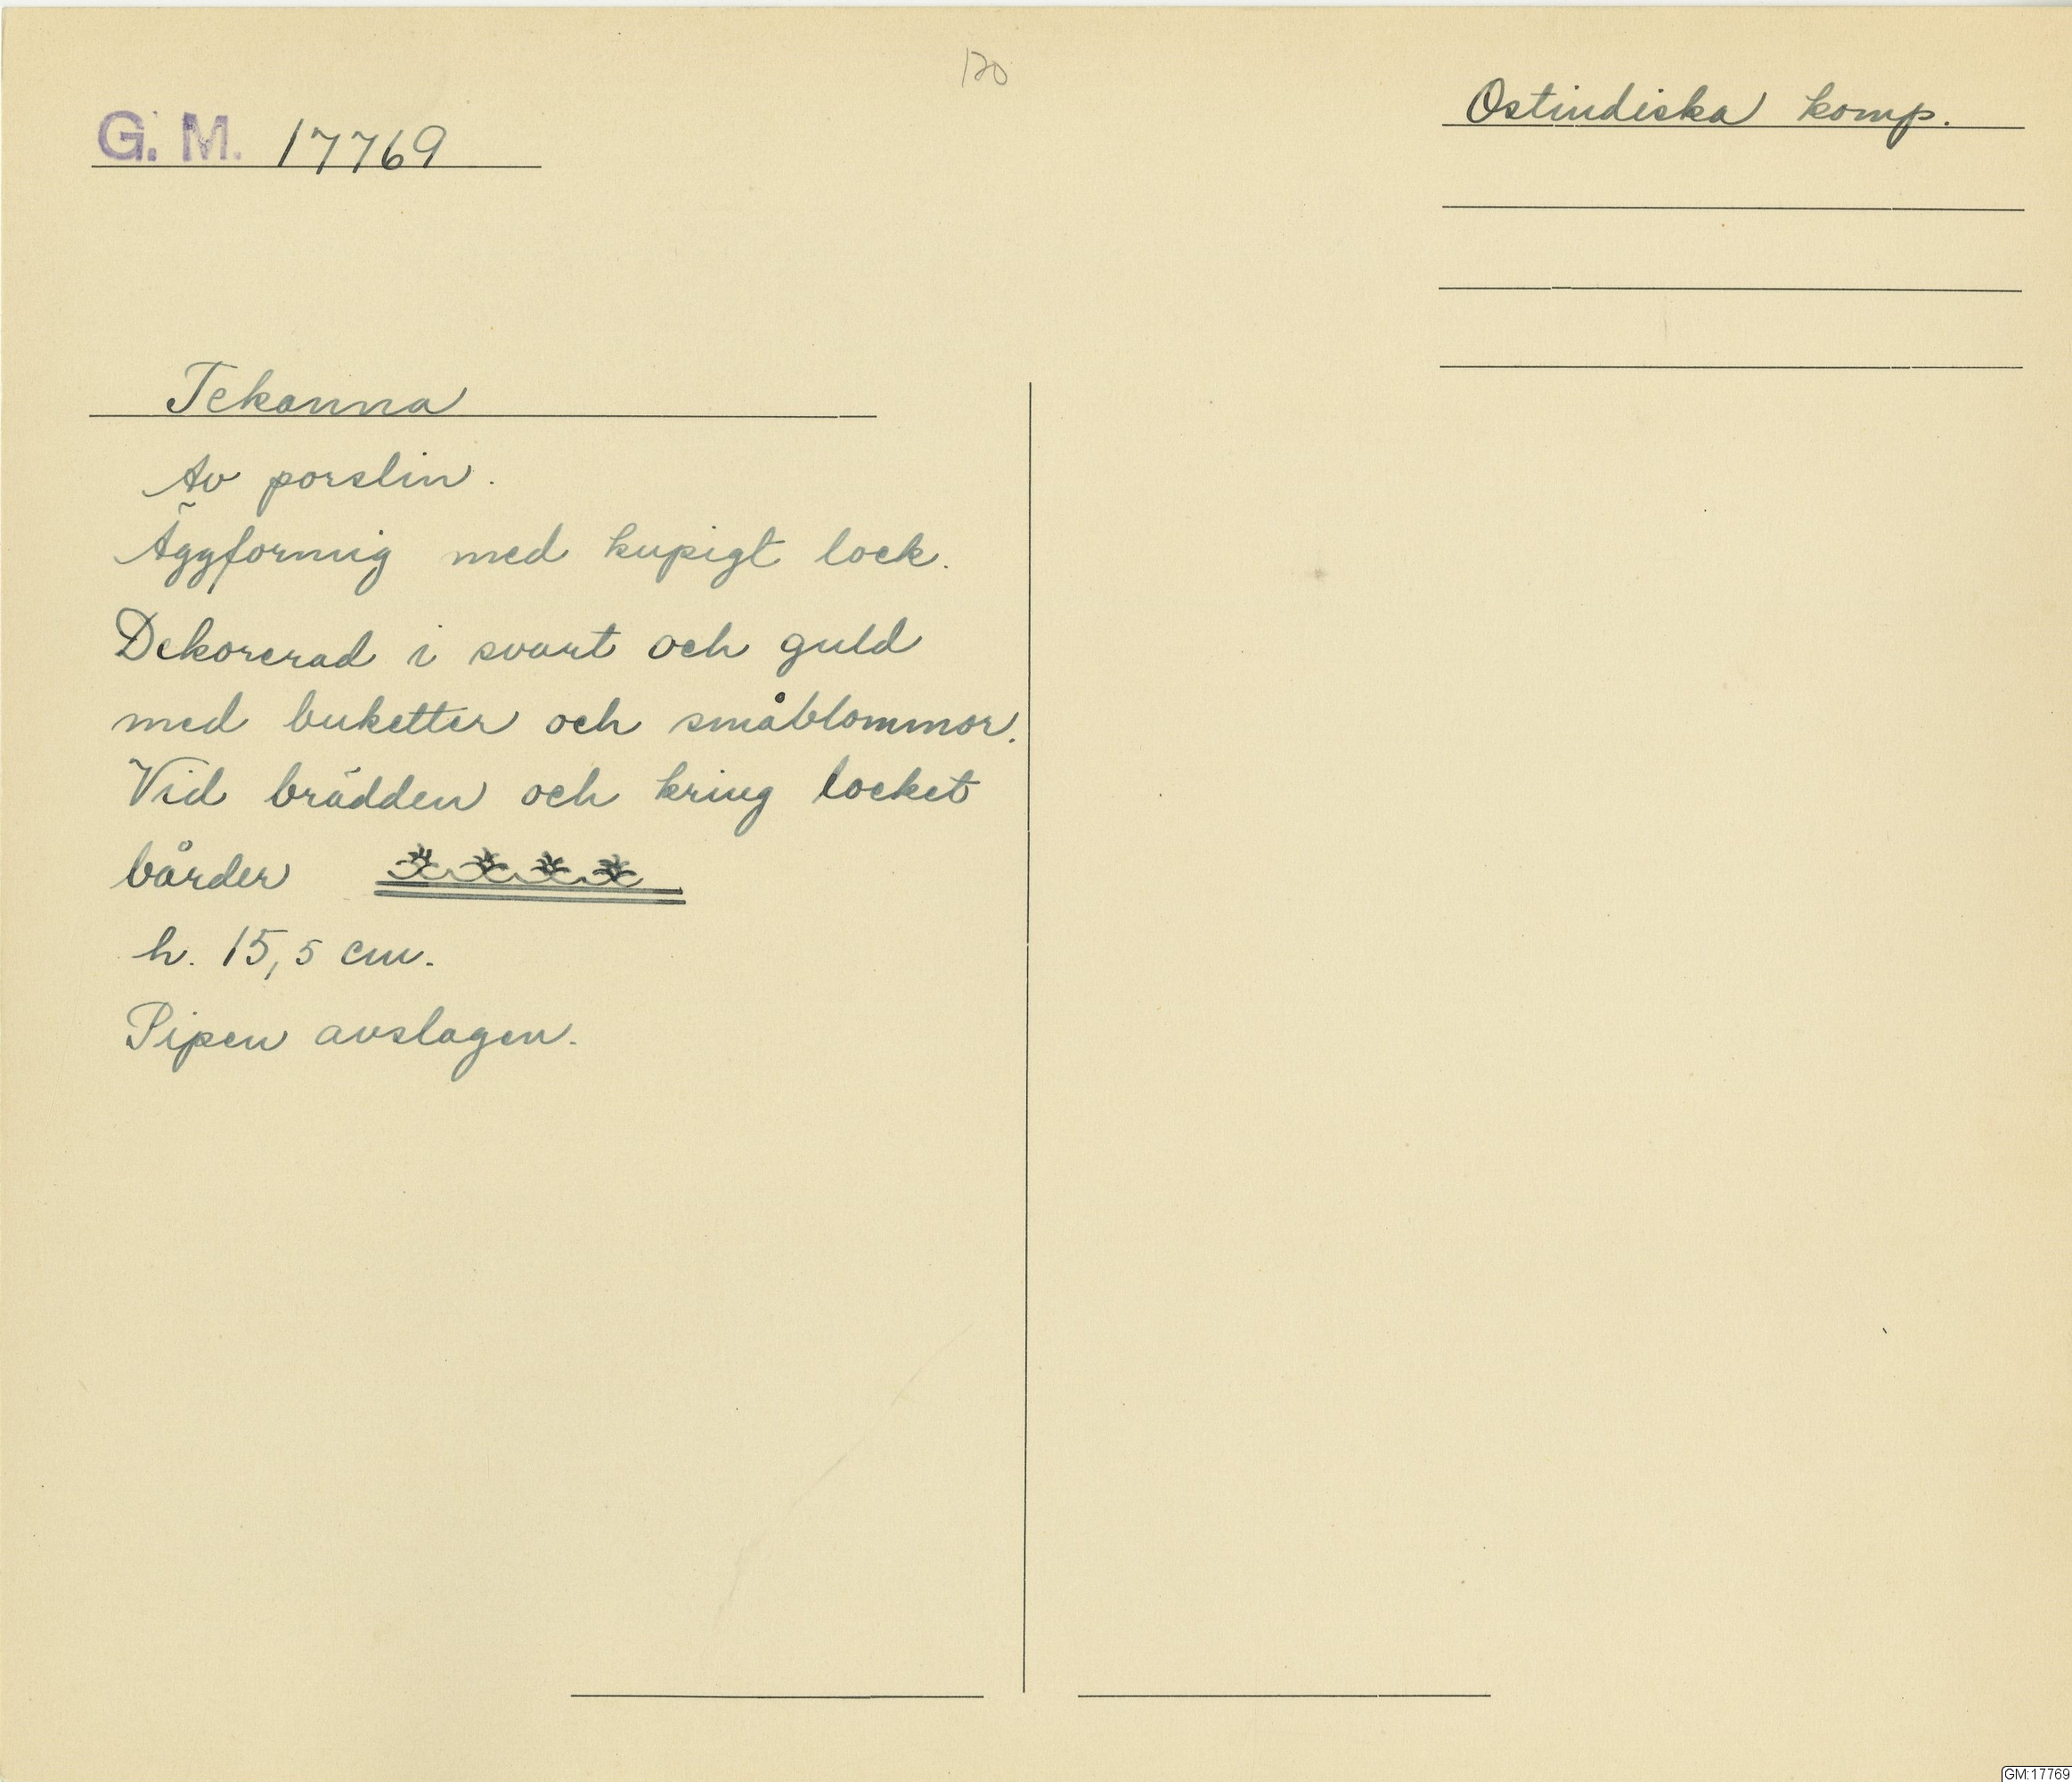 120
Ostindiska komp.
G. M. 17769
Tekanna
Av porslin.
Äggformig med kupigt lock.
Dekorerad i svart och guld
med buketter och småblommor.
Vid brädden och kring locket
bårder
h. 15,5 cm.
Pipen avslagen.
GM:17769